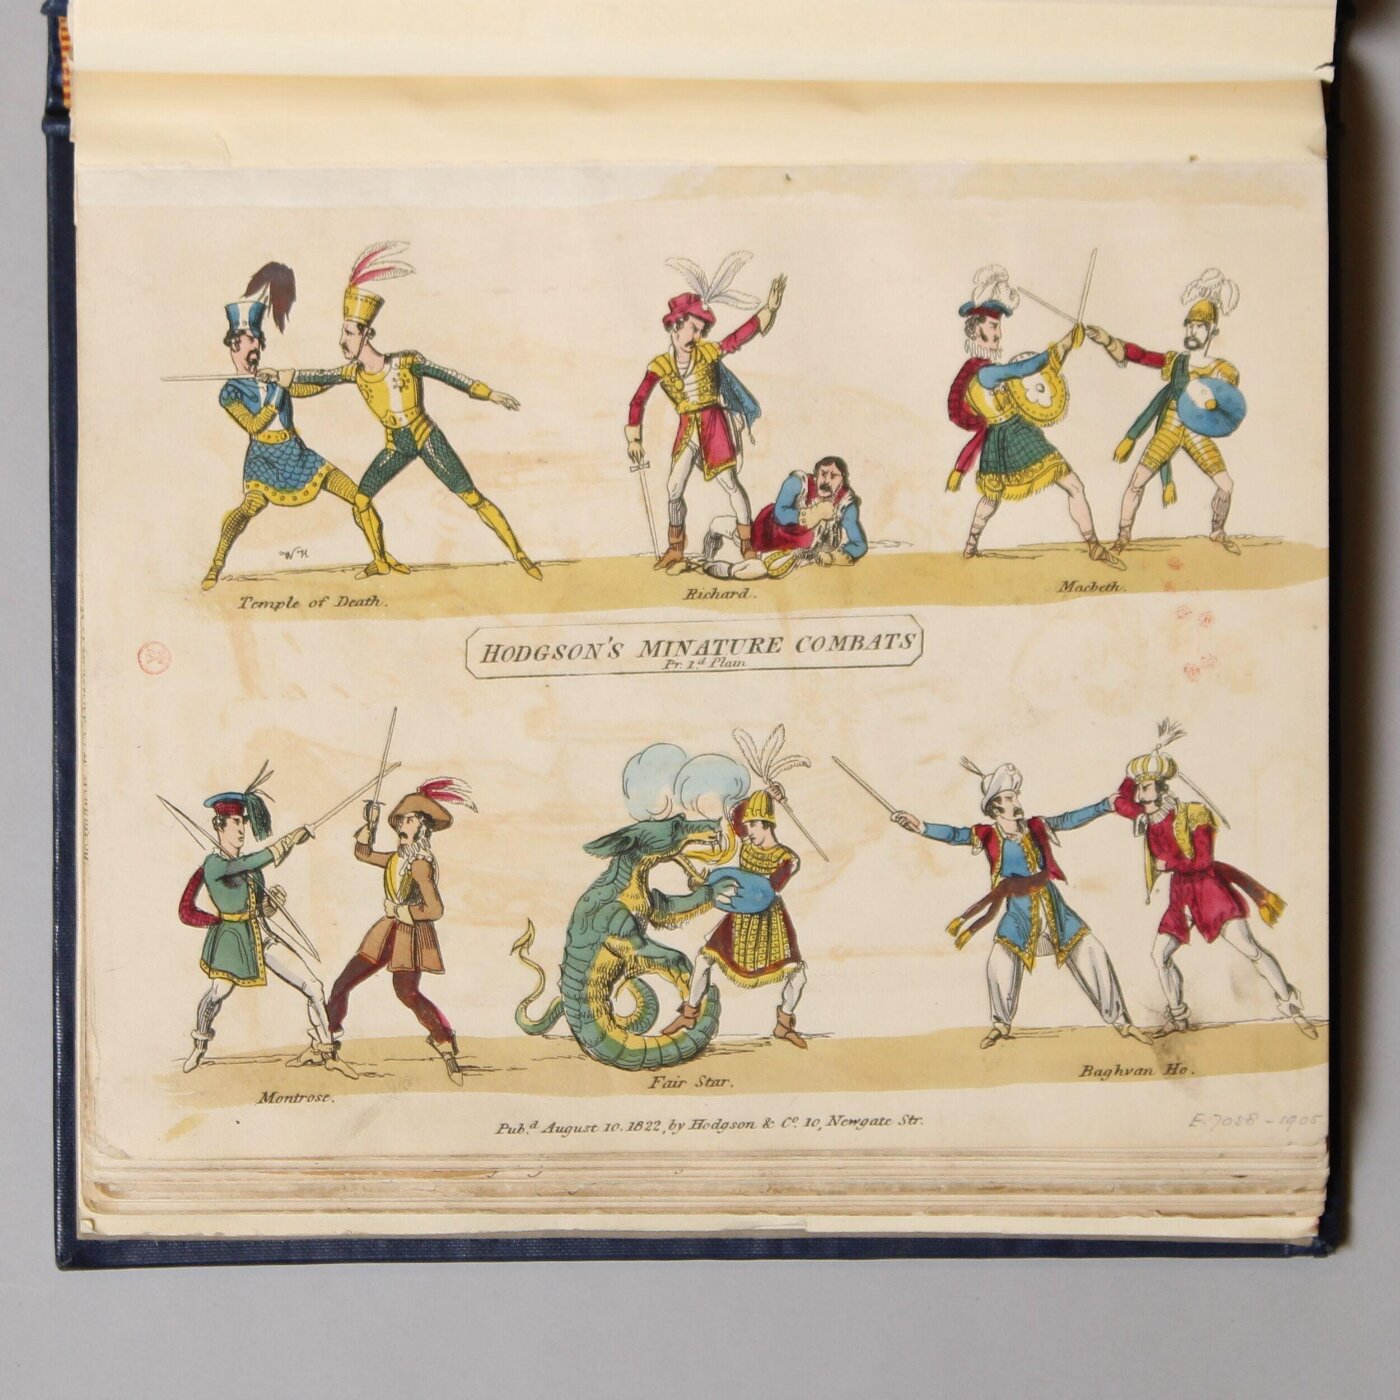 WH
Temple of Death.
Richard.
Macbeth.
HODGSON'S MINATURE COMBATS
Pr. 1.d Plain
Montrose.
Fair Star.
Baghvan Ho.
Pub.d August 10. 1822, by Hodgson & Co. 10, Newgate Str.
E.7058-1905